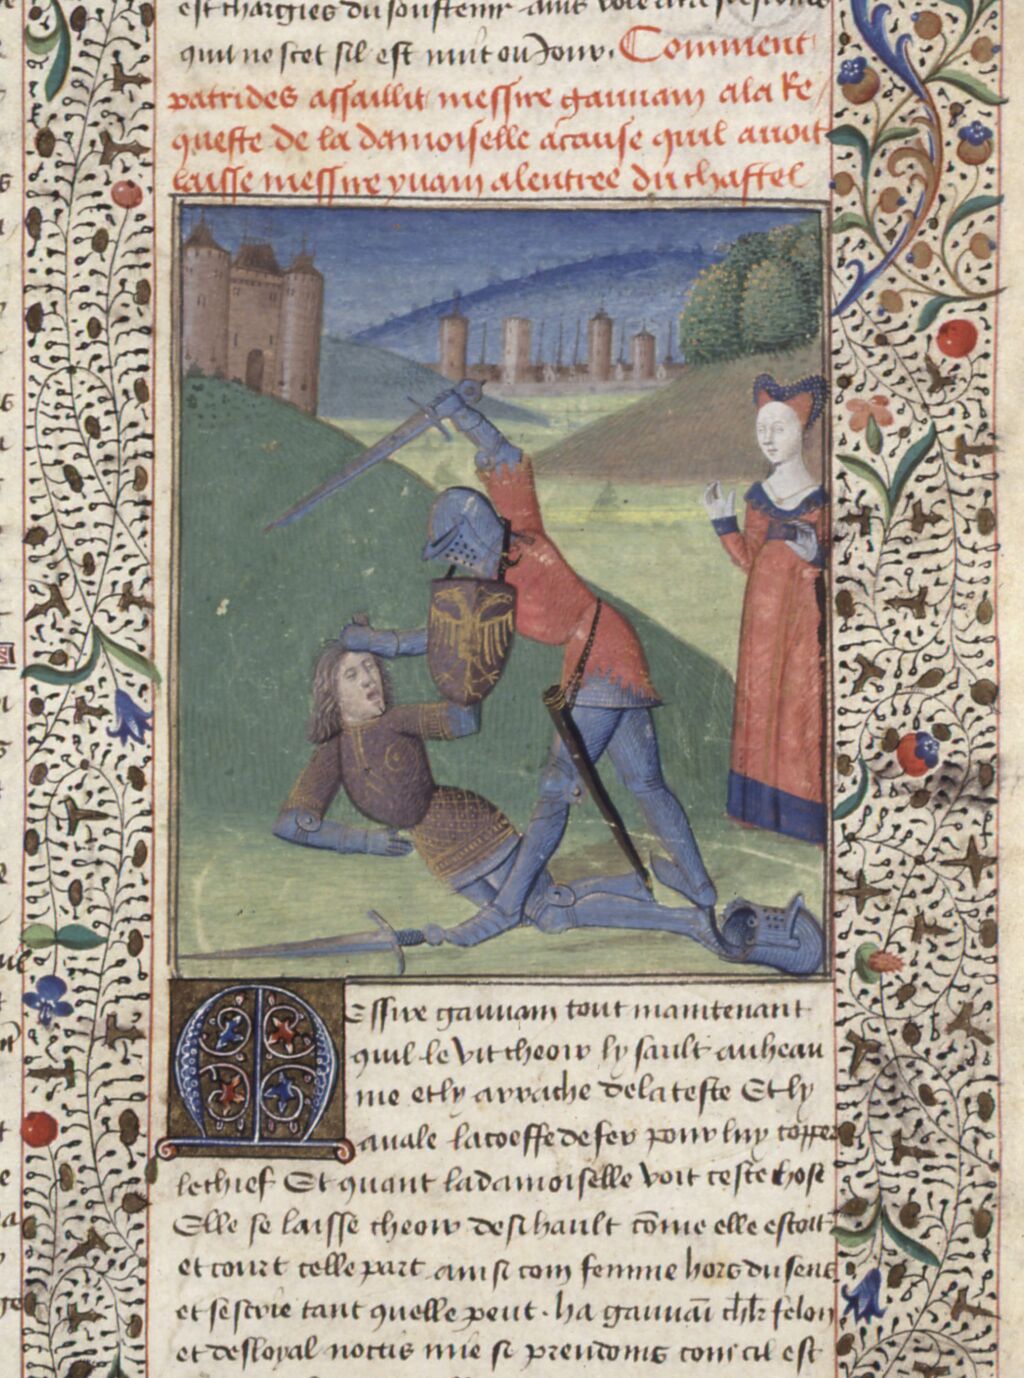 est chargies du soustenir
qui ne scet sil est nuit ou Jour. Comment
patrides assaillit messire gauuain a la Re
queste de la damoiselle a cause quil auoit
laisse messire yuain a lentree du chastel
Messire gauuain tout maintenant
quil le vit cheoir ly sault au heau
me et ly arrache de la teste Et ly
auale la coeffe de fer pour luy copper
le chief Et quant la damoiselle voit ceste chose
Elle se laisse cheoir de si hault cōme elle estoit
et court celle part ainsi com femme hors du sens
et sescrie tant quelle peut. ha gauuaī chl̄r felon
et desloyal nocris mie si preudoms com cil est